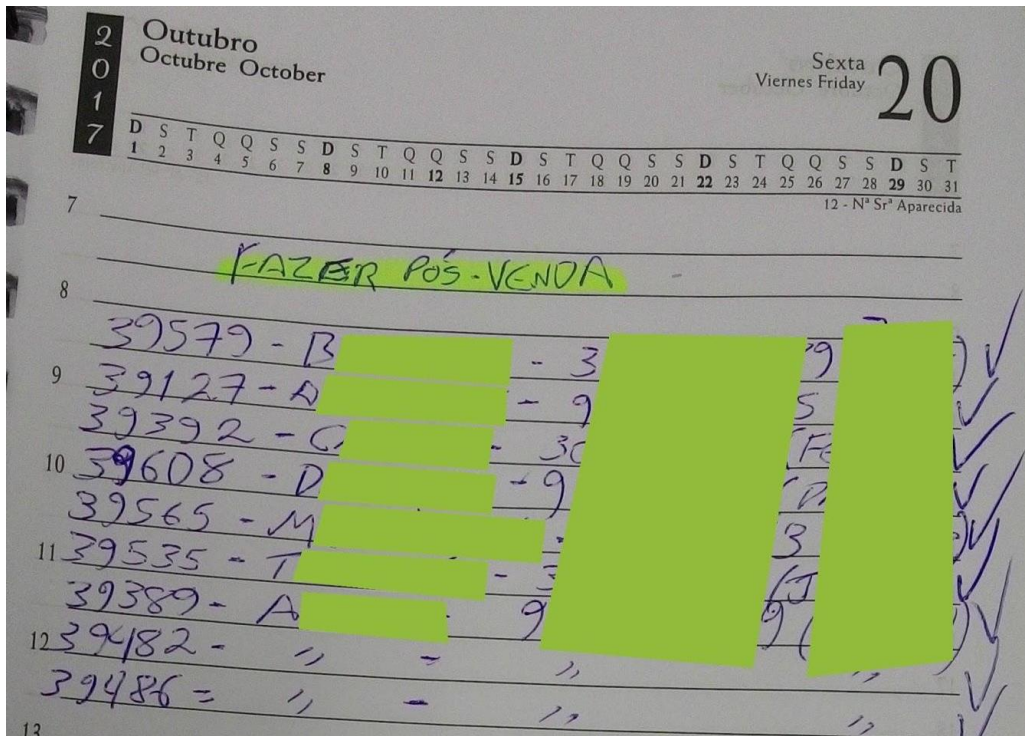 2017
Outubro
Octubre October
Sexta
Viernes Friday
20
D S T Q Q S S D S T Q Q S S D S T Q Q S S D S T Q Q S S D S T
1 2 3 4 5 6 7 8 9 10 11 12 13 14 15 16 17 18 19 20 21 22 23 24 25 26 27 28 29 30 31
12 - Nª Srª Aparecida
7
FAZER PÓS-VENDA
8
39579 - B - 3 9 )
9
39127 - A - 9 5
39392 - C - 30 (Fe
10
39608 - D - 9 (D
39565 - M - 3 )
11
39535 - T - 3 (J
39389 - A - 9 9 ( )
12
39482 - ,, - ,, ,,
39486 = ,, - ,, ,,
13